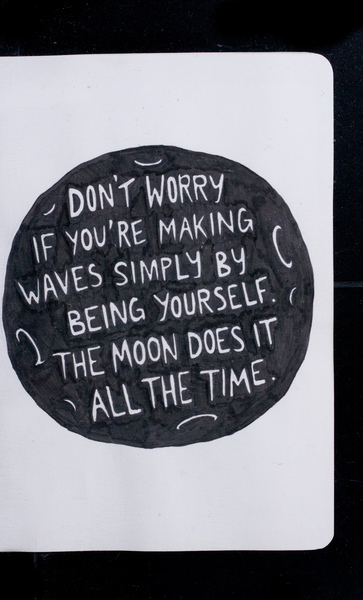 DON'T WORRY
IF YOU'RE MAKING
WAVES SIMPLY BY
BEING YOURSELF.
THE MOON DOES IT
ALL THE TIME.